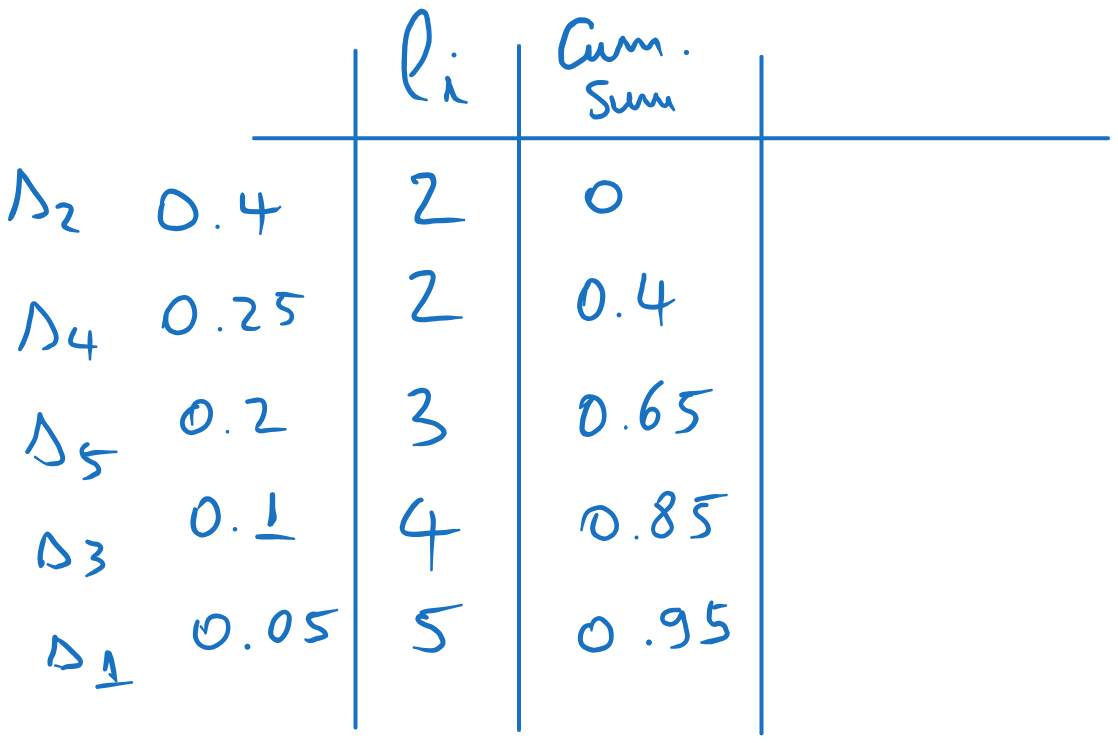 li Cum. Sum
s2 0.4 2 0
s4 0.25 2 0.4
s5 0.2 3 0.65
s3 0.1 4 0.85
s1 0.05 5 0.95